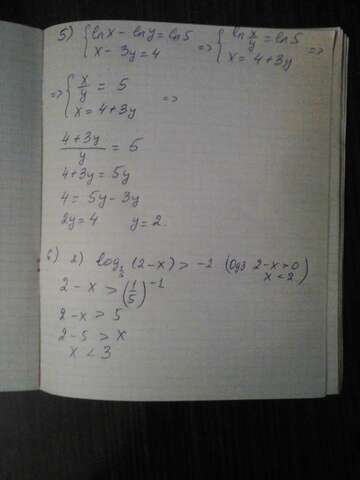 5) { ln x - ln y = ln 5 => { ln x/y = ln 5 =>
x - 3y = 4 x = 4 + 3y
=> { x/y = 5 =>
x = 4 + 3y
(4 + 3y)/y = 5
4 + 3y = 5y
4 = 5y - 3y
2y = 4 y = 2.
6) 2) log (2 - x) > -1 (одз 2 - x > 0
x < 2)
2 - x > (1/5)^-1
2 - x > 5
2 - 5 > x
x < 3